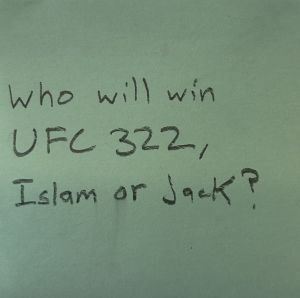 Who will win
UFC 322,
Islam or Jack?